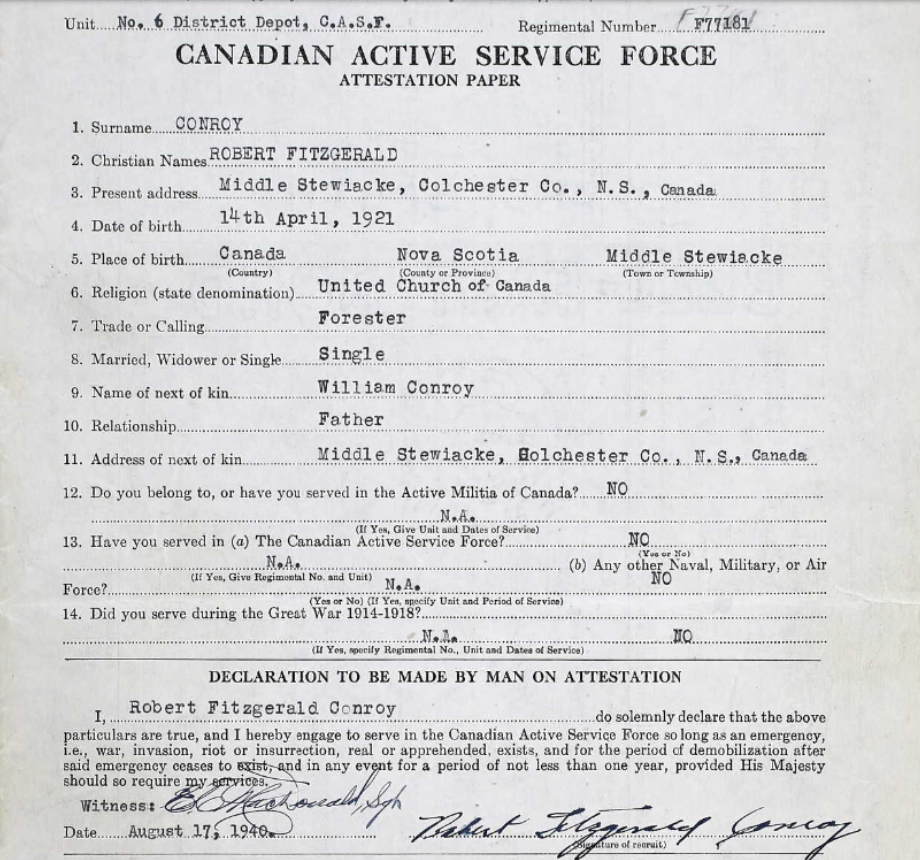 Unit No. 6 District Depot, C.A.S.F. Regimental Number F77181
CANADIAN ACTIVE SERVICE FORCE
ATTESTATION PAPER
1. Surname CONROY
2. Christian Names ROBERT FITZGERALD
3. Present address Middle Stewiacke, Colchester Co., N.S., Canada
4. Date of birth 14th April, 1921
5. Place of birth Canada Nova Scotia Middle Stewiacke
(Country) (County or Province) (Town or Township)
6. Religion (state denomination) United Church of Canada
7. Trade or Calling Forester
8. Married, Widower or Single Single
9. Name of next of kin William Conroy
10. Relationship Father
11. Address of next of kin Middle Stewiacke, Holchester Co., N.S., Canada
12. Do you belong to, or have you served in the Active Militia of Canada? NO
N.A.
(If Yes, Give Unit and Dates of Service)
13. Have you served in (a) The Canadian Active Service Force? NO
(Yes or No)
N.A. (b) Any other Naval, Military, or Air
(If Yes, Give Regimental No. and Unit)
Force? N.A. NO
(Yes or No) (If Yes, specify Unit and Period of Service)
14. Did you serve during the Great War 1914-1918?
N.A. NO
(If Yes, specify Regimental No., Unit and Dates of Service)
DECLARATION TO BE MADE BY MAN ON ATTESTATION
I, Robert Fitzgerald Conroy do solemnly declare that the above
particulars are true, and I hereby engage to serve in the Canadian Active Service Force so long as an emergency,
i.e., war, invasion, riot or insurrection, real or apprehended, exists, and for the period of demobilization after
said emergency ceases to exist, and in any event for a period of not less than one year, provided His Majesty
should so require my services.
Witness: MacDonald, Sgt
Date August 17, 1940. Robert Fitzgerald Conroy
(Signature of recruit)